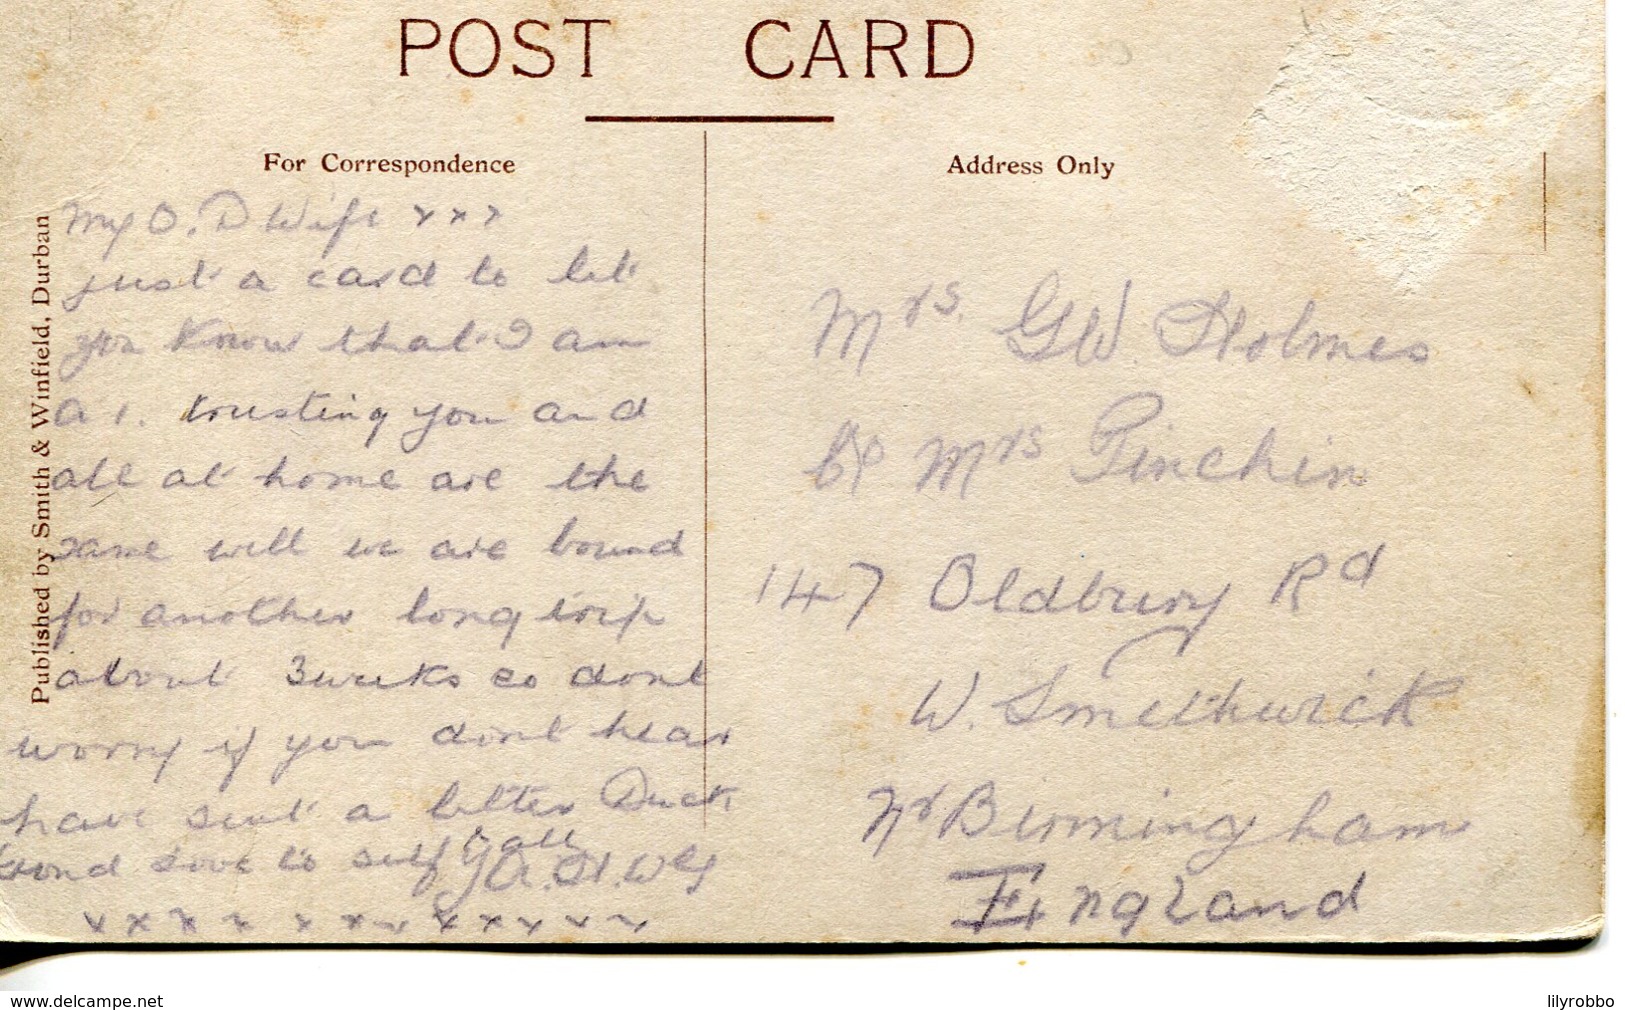 POST CARD
For Correspondence
Address Only
Published by Smith & Winfield, Durban
My O. D Wife x x x
just a card to let
you know that I am
A 1. trusting you and
all at home are the
same well we are bound
for another long trip
about 3 weeks so dont
worry if you dont hear
have sent a letter Duck
Fond Love to self & all
x x x x x x x x x x x x
Mrs. G W. Holmes
c/o Mrs Pinchin
147 Oldbury Rd
W. Smethwick
Nr Birmingham
England
www.delcampe.net
lilyrobbo